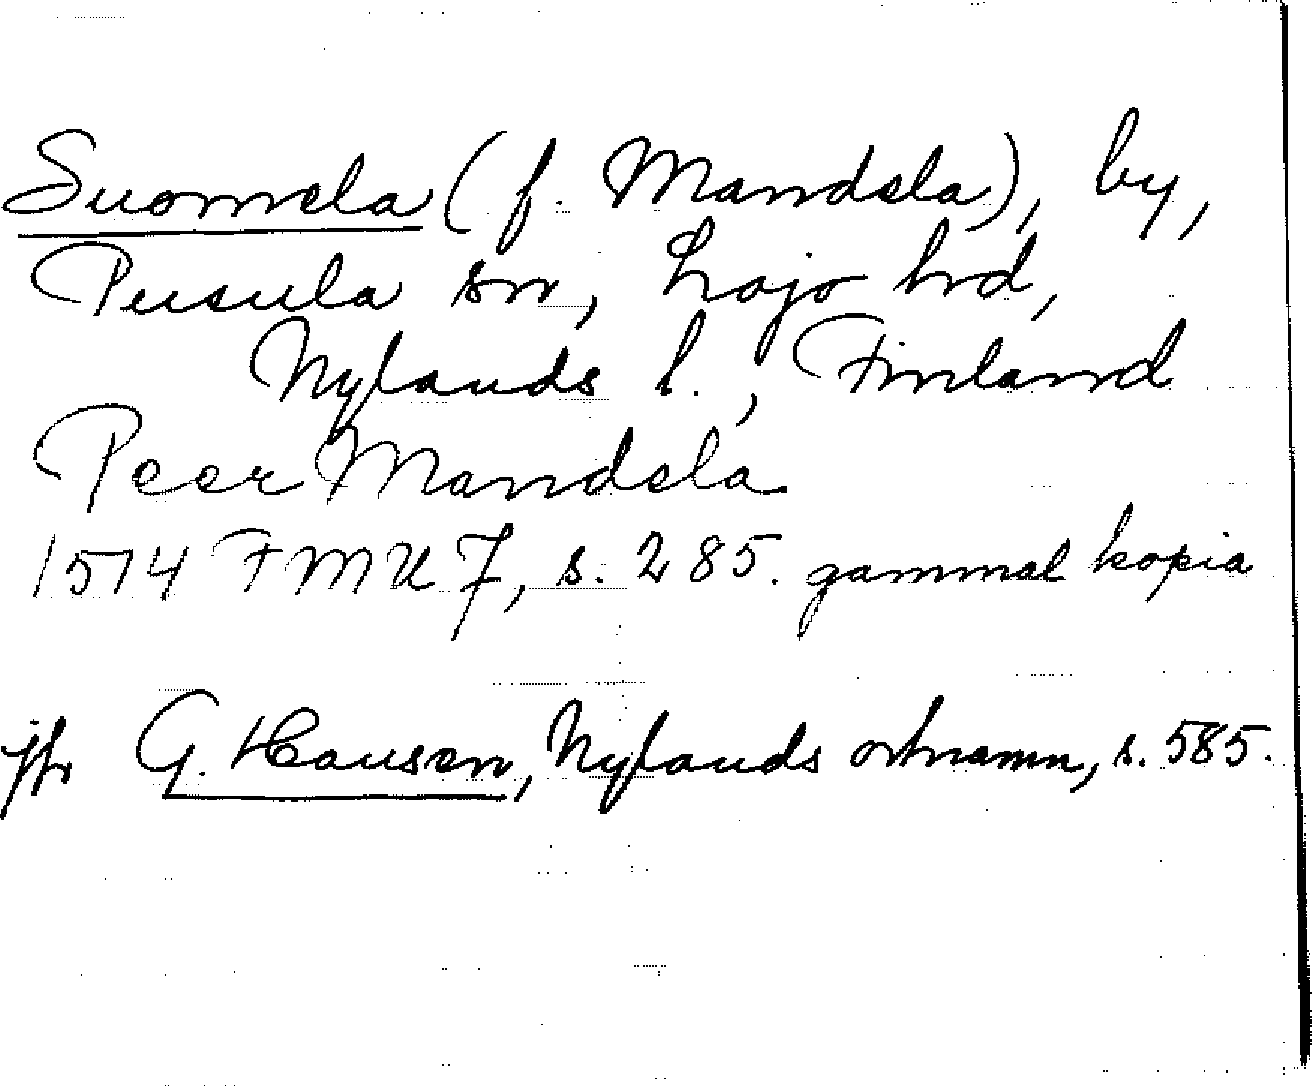 Suomela (f. Mandela), by,
Pusula sn, Lojo hrd,
Nylands l., Finland
Peer Mandela
1574 FMU 7, s. 285. gammal kopia
jfr G. Hausen, Nylands ortnamn, s. 585.